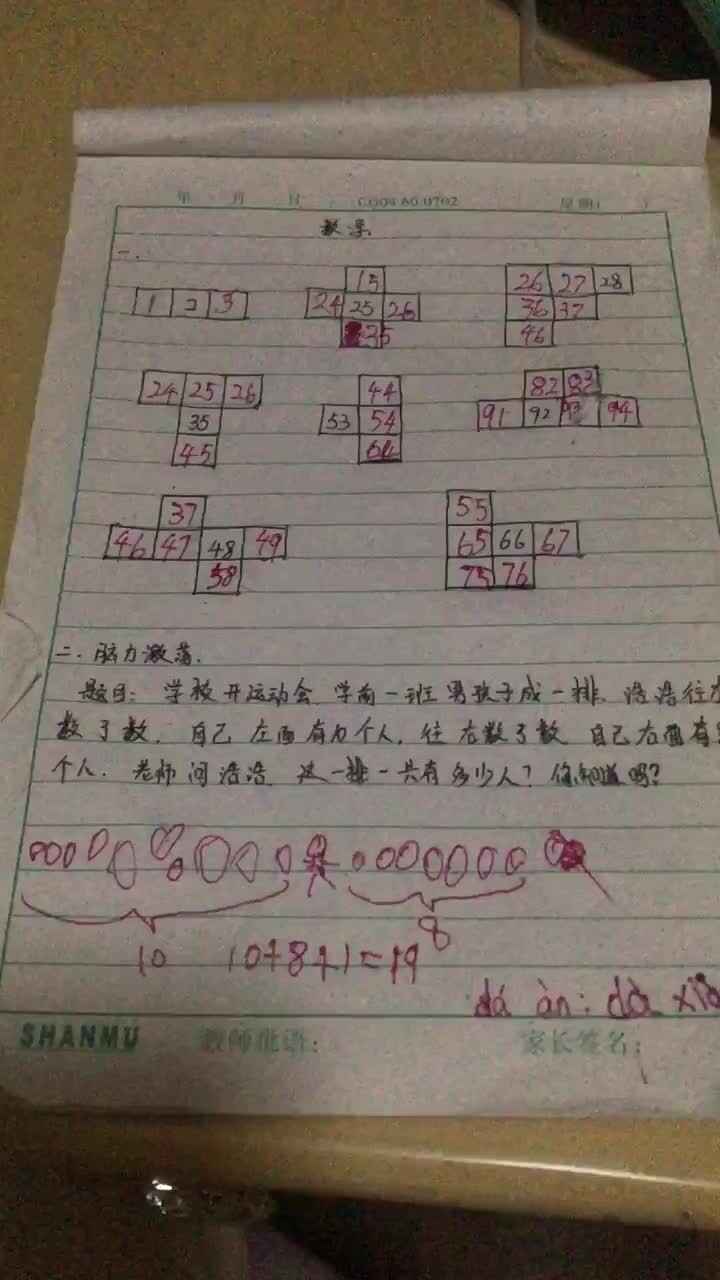 年 月 日
星期( )
数学
一.
15
26 27 28
1 2 3
24 25 26
36 37
35
46
24 25 26
44
82 83
35
53 54
91 92 93 94
45
64
37
55
46 47 48 49
65 66 67
58
75 76
二.脑力激荡.
题目: 学校开运动会 学前一班男孩子成一排. 浩浩往左
数了数. 自己左面有10个人. 往右数了数 自己右面有
个人. 老师问浩浩 这一排一共有多少人? 你知道吗?
10 10+8+1=19
8
dá àn: dà
SHANMU 教师批语: 家长签名: